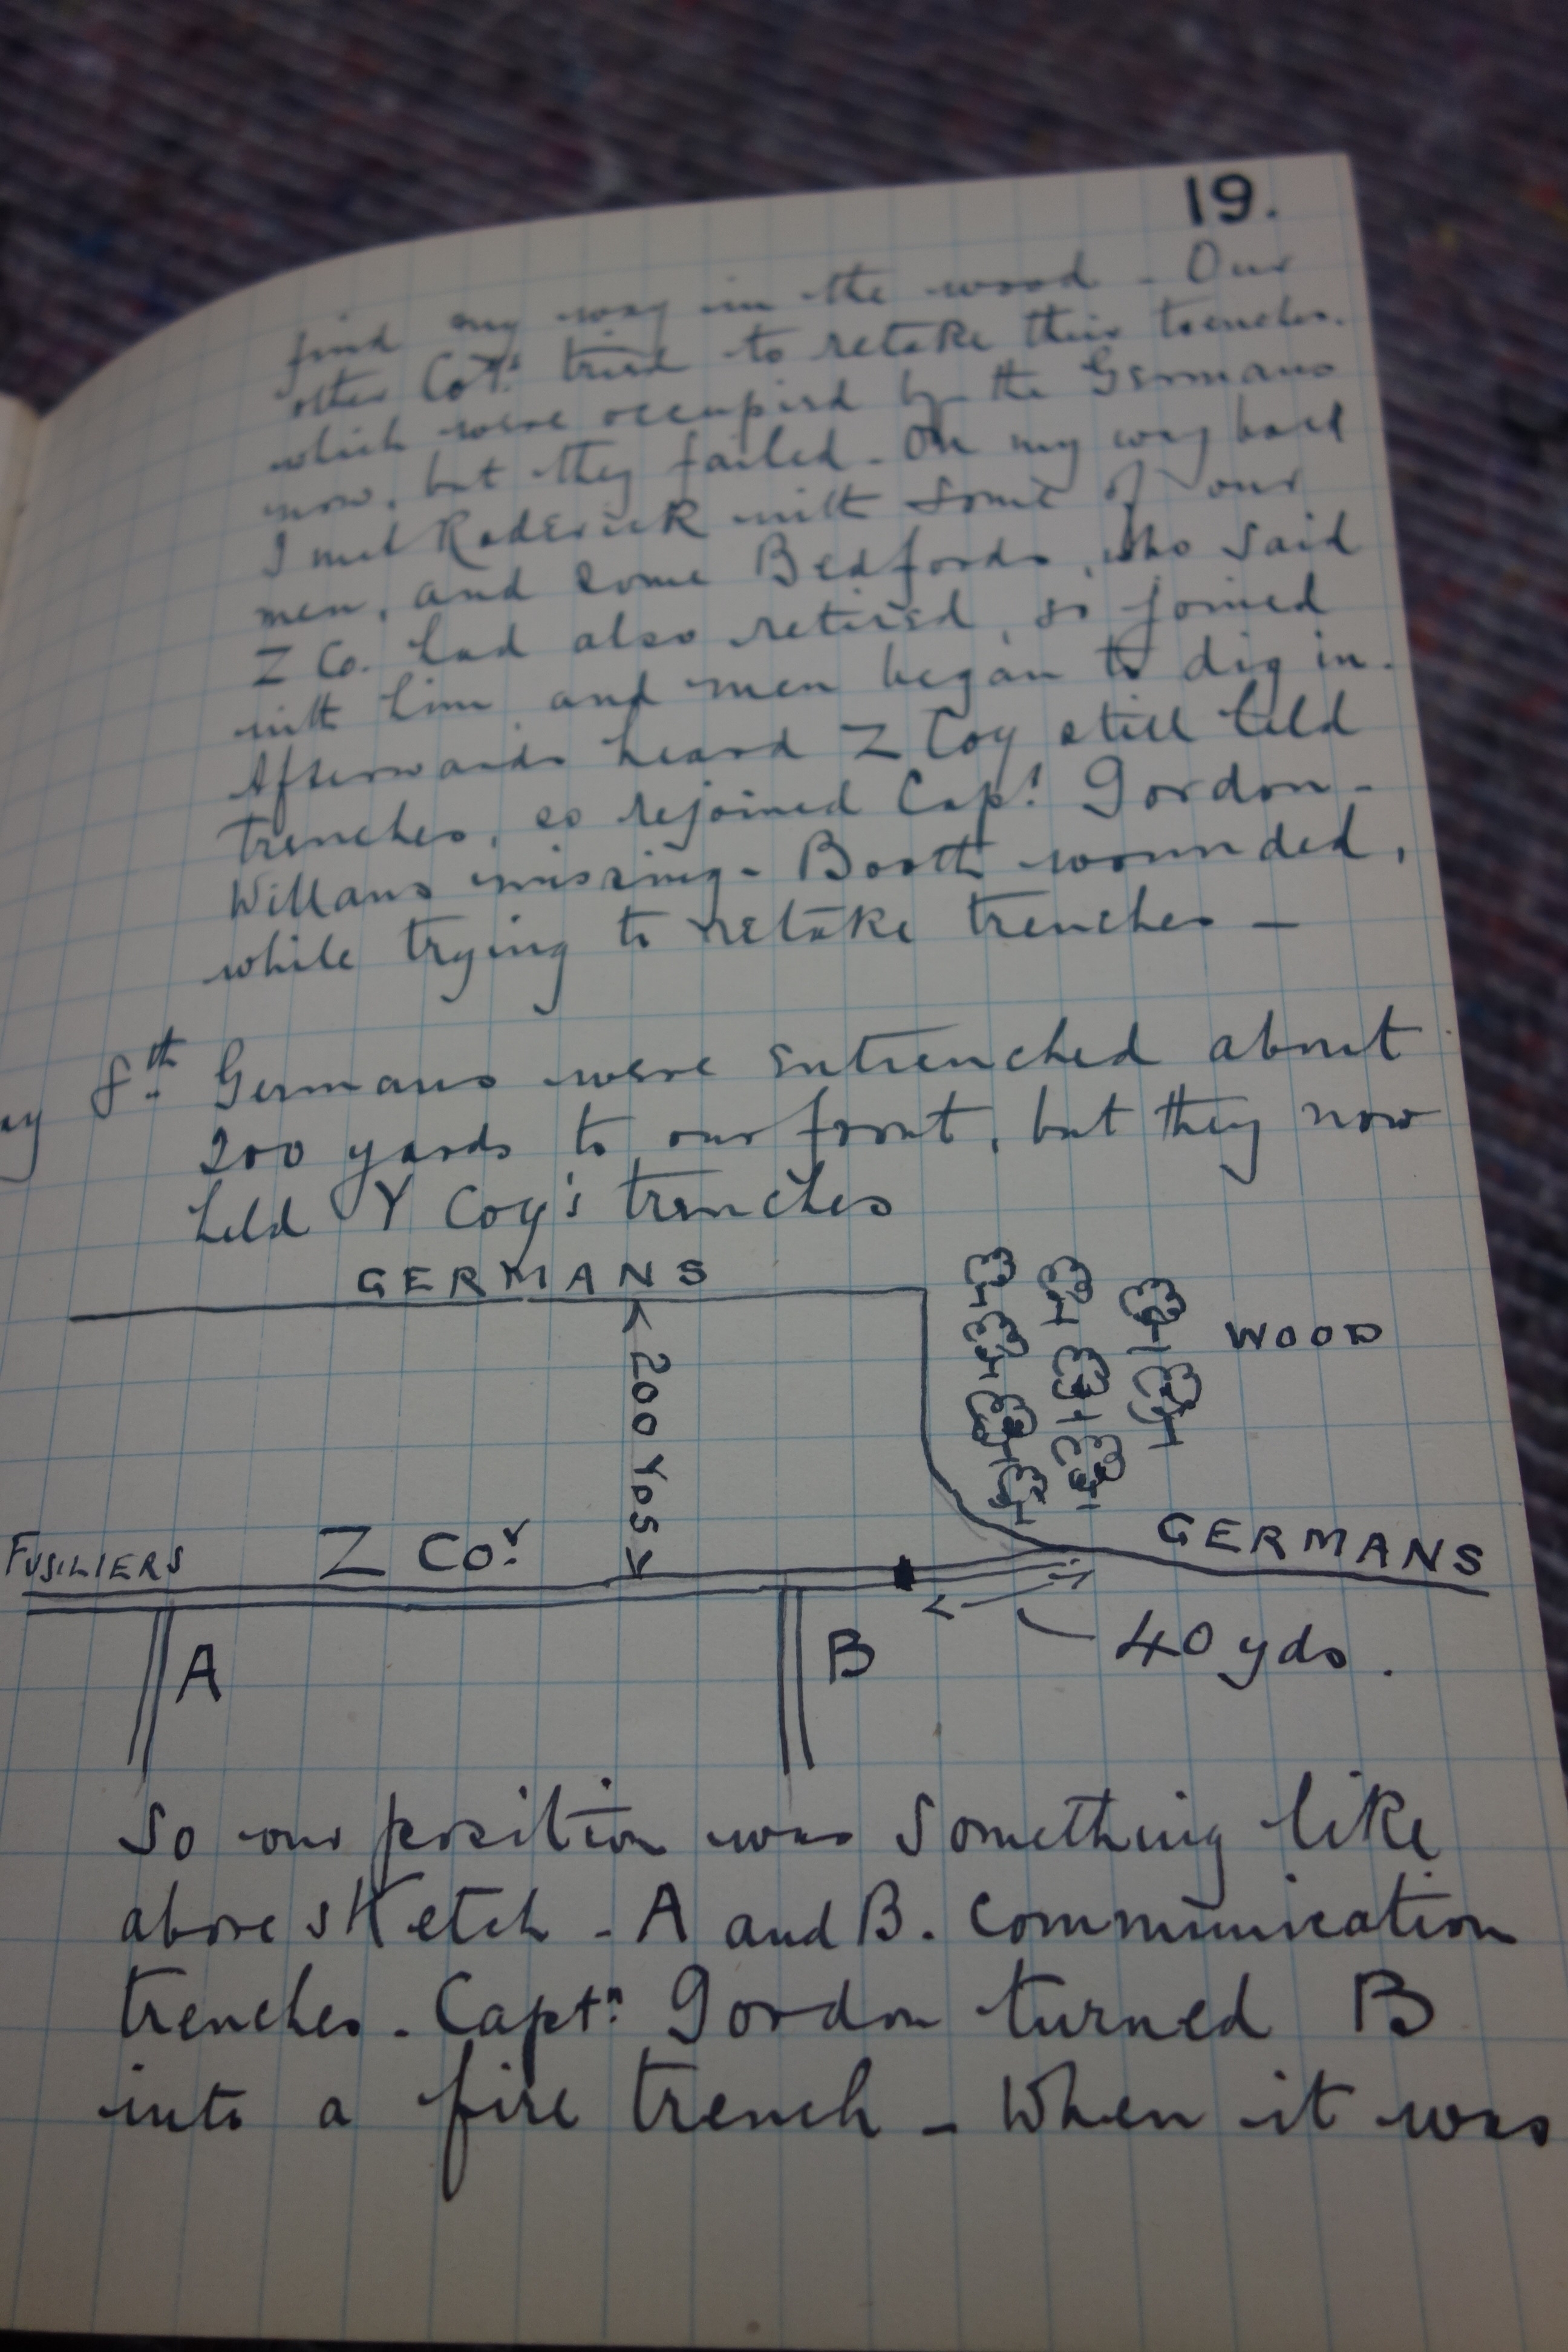 19.
find my way in the wood - Our
other Coys. tried to retake their trenches.
which were occupied by the Germans
now, but they failed - On my way back
I met Roderick with some of our
men, and some Bedfords, who said
Z Co. had also retired, so joined
with him and men began to dig in.
Afterwards heard Z Coy still held
trenches, so rejoined Capt Gordon -
Willans missing - Booth wounded,
while trying to retake trenches -
8th Germans were entrenched about
200 yards to our front, but they now
held Y Coy's trenches
GERMANS
WOOD
200 YDS
FUSILIERS
Z COY
GERMANS
A
B
40 yds.
So our position was something like
above sketch - A and B. communication
trenches - Captn Gordon turned B
into a fire trench - When it was